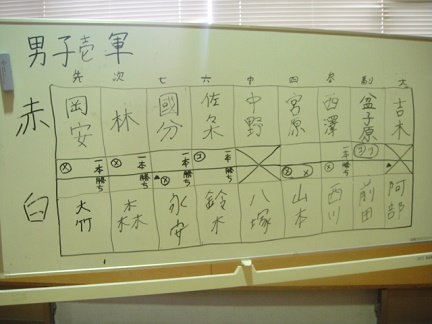 男子壱軍
先 次 七 六 中 四 三 副 大
赤 岡安 林 國分 佐々木 中野 宮原 西澤 益子原 吉木
メ 一本勝ち メ 一本勝ち メ 一本勝ち コ 一本勝ち メ 一本勝ち
白 大竹 森 永安 鈴木 八塚 山本 西川 前田 阿部